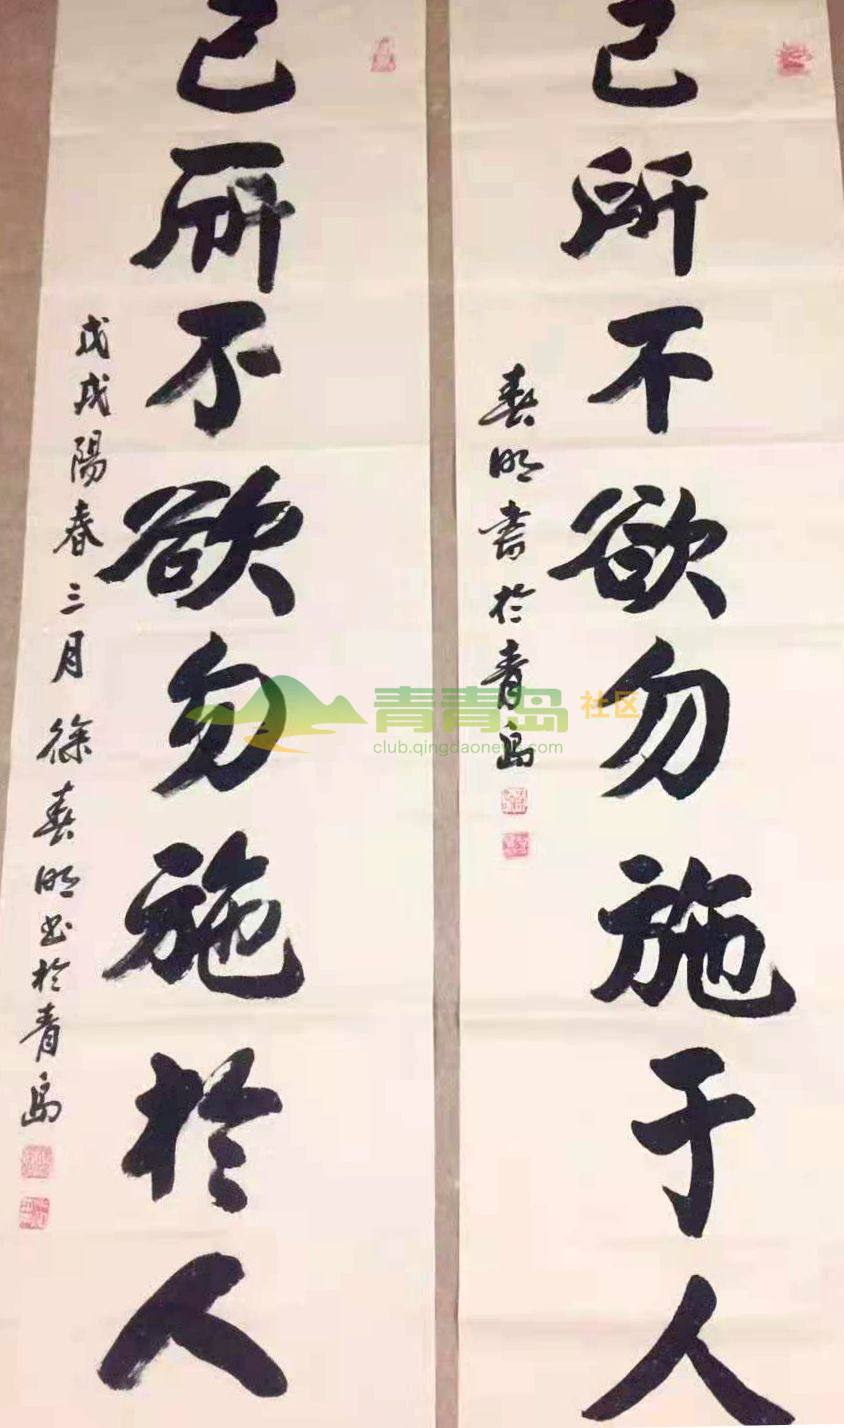 己所不欲勿施于人
春明書於青島
己所不欲勿施於人
戊戌陽春三月徐春明书於青島
青青岛社区
club.qingdaonews.com